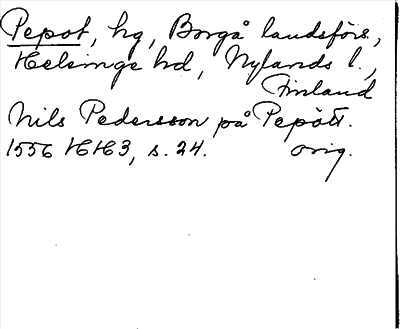 Pepot, hg, Borgå landsförs.,
Helsinge hd, Nylands l.,
Finland
Nils Pedersson på Pepött.
1556 HH3, s. 24. orig.